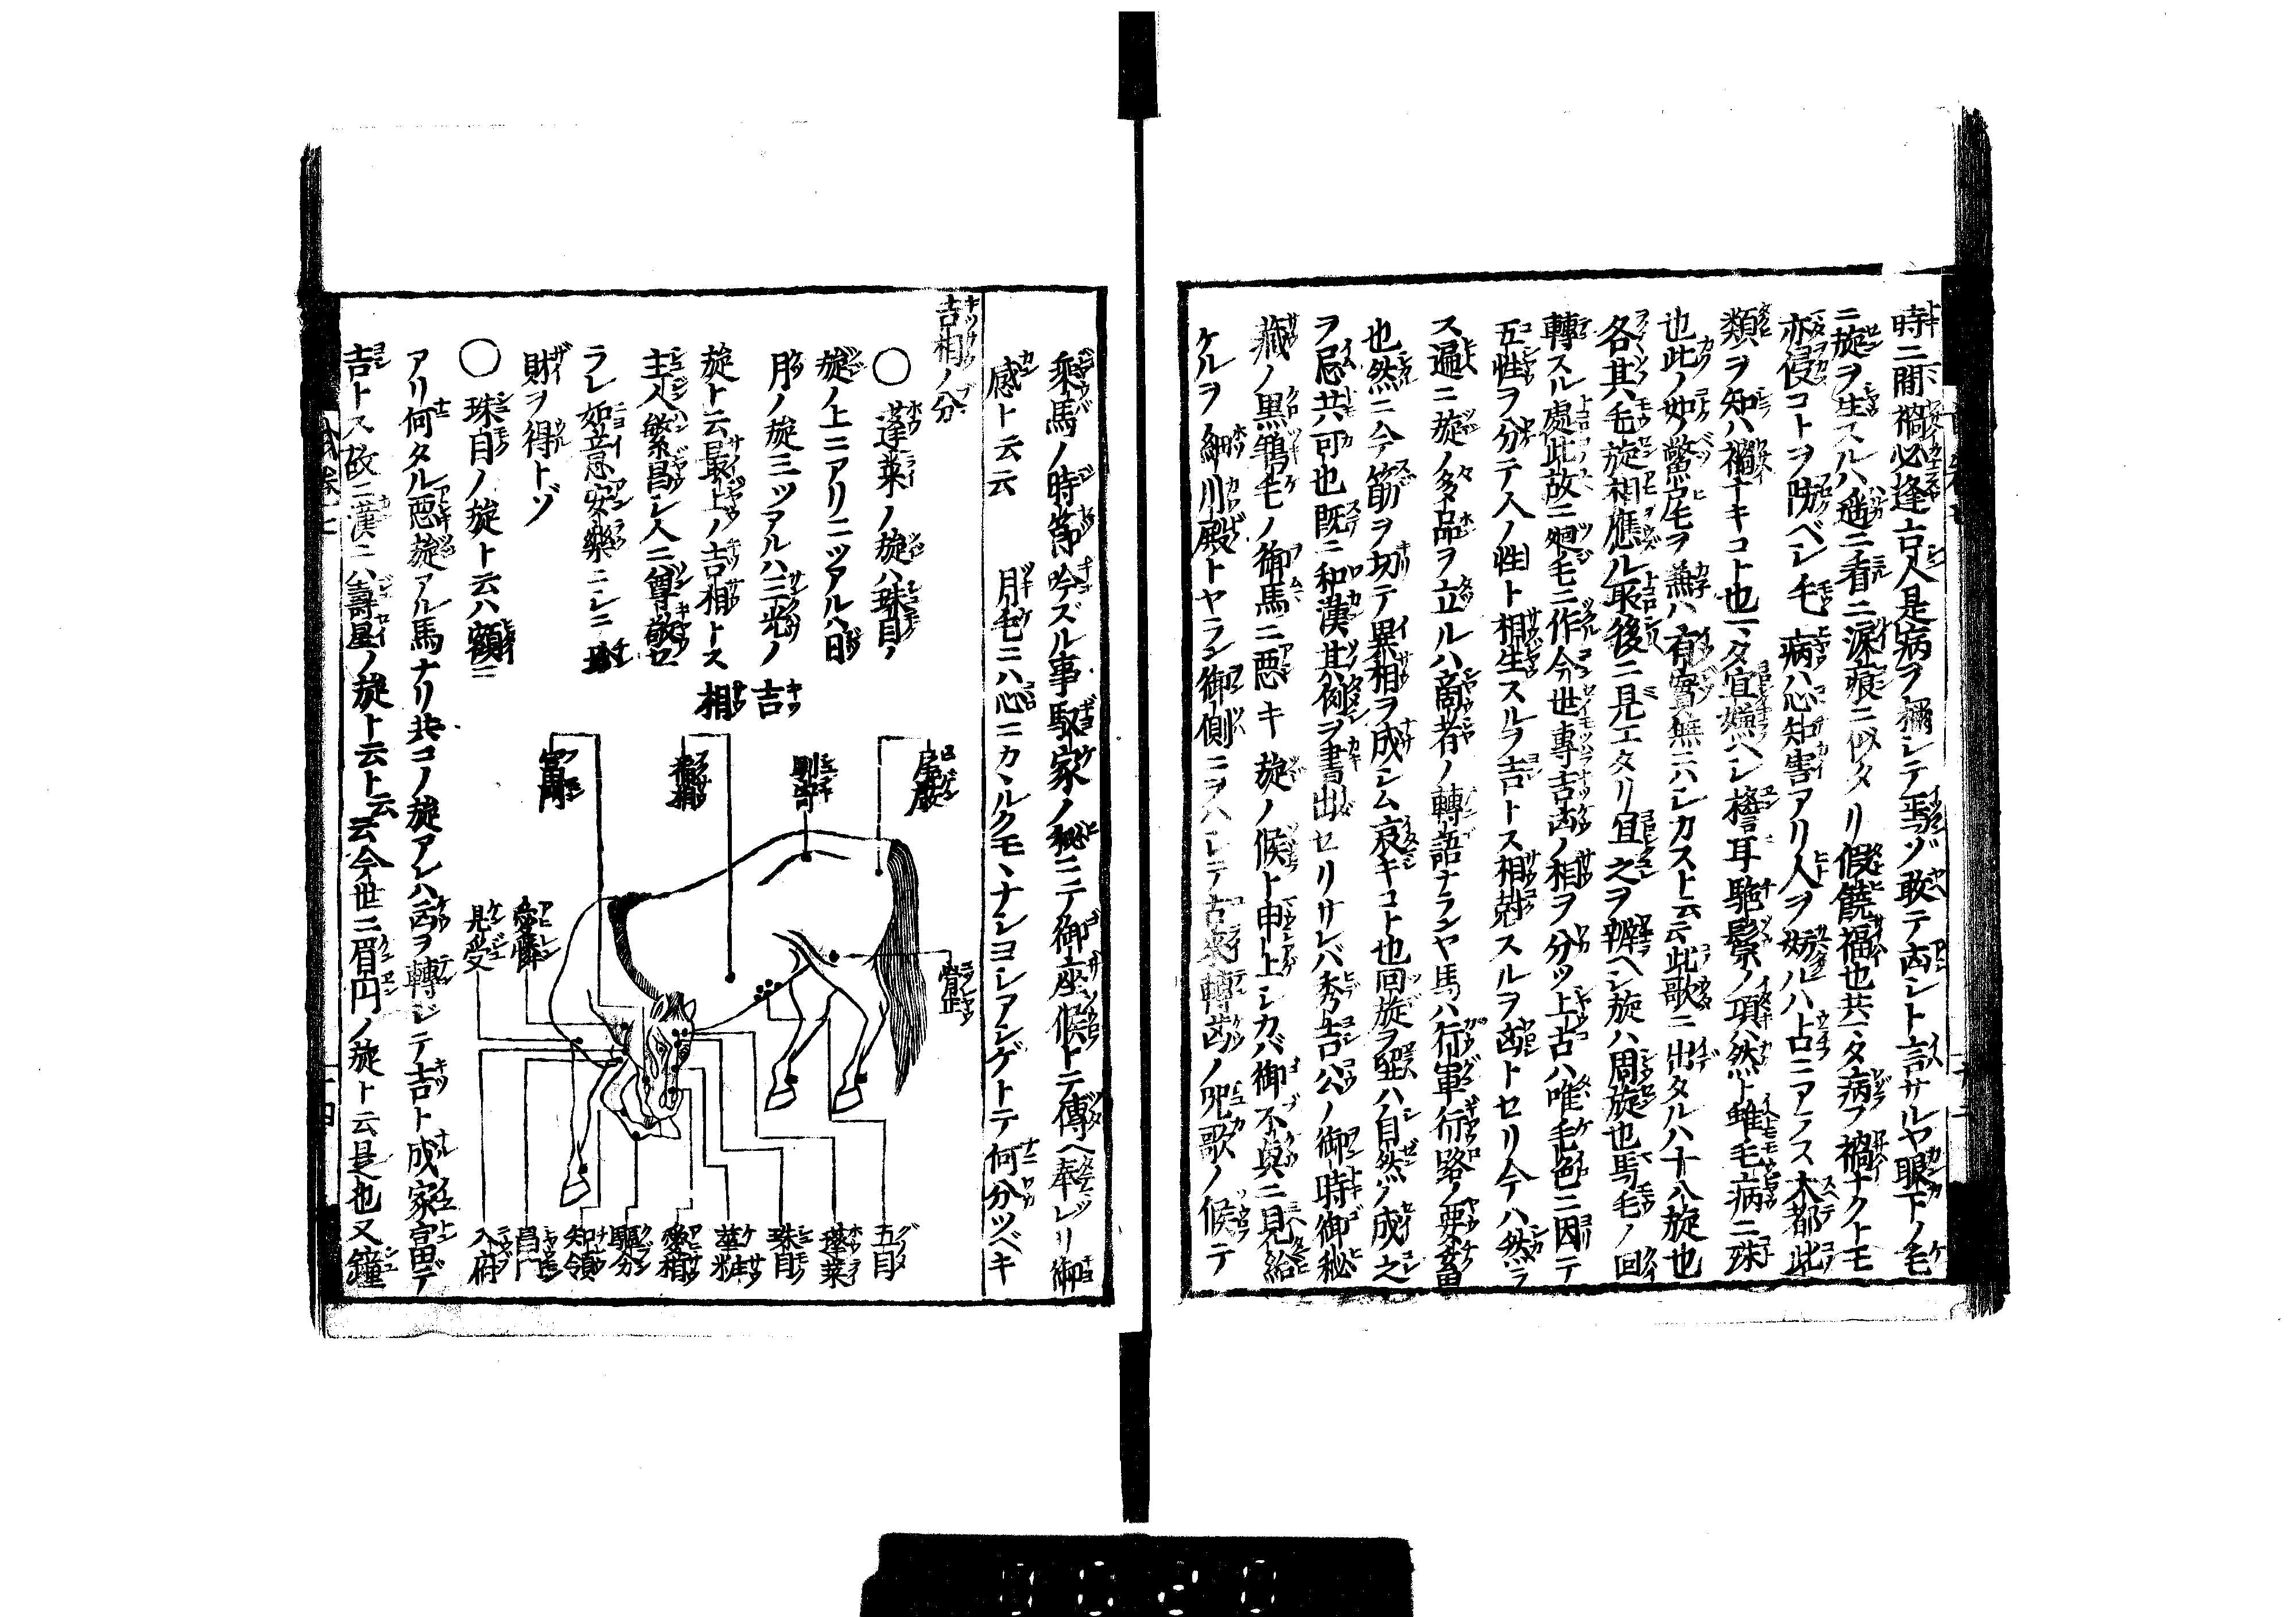 時ニ間禍必逢吉人是病ヲ獮シテ焉ゾ敢テ凶シト言サルヤ眼下ノ毛
ニ旋ヲ生スルハ遥ニ看ニ涙痕ニ似タリ假饒福也共一タ病フ禍ナクトモ
亦侵コトヲ防ベシ毛病ハ心知害アリ人ヲ妨ルハ占ニアラス大都此
類ヲ知ハ禍ナキコト也一タ宜嫌ヘシ耳駞鬃ノ項ハ然ト雖毛病ニ殊
也此ノ如ノ鱉尾毛ヲ無ハ有實無ニハシカスト云云此歌ニ出タルハ十八旋也
各其毛旋相應ル最後ニ見エタリ宜之ヲ辨ヘシ旋ハ周旋也馬毛ノ回
轉スル處此故ニ廻毛ニ作今世專吉凶ノ相ヲ分ツ上古ハ唯毛色ニ因テ
五性ヲ分テ人ノ性ト相生スルヲ吉トス相尅スルヲ凶トセリ今ハ然ラ
ス遍ニ旋ノ多品ヲ立ルハ商者ノ轉語ナランヤ馬ハ行軍ノ行路ノ要畜
也然ニ今筋ヲ切テ異相ヲ成シム哀キコト也回旋ヲ璧ハ自然ノ成之
ヲ忌共可也既ニ和漢其例ヲ書出セリサレバ秀吉公ノ御時御秘
藏ノ黒鴾毛ノ御馬ニ悪キ旋ノ候ト申上シカバ御不興ニ見給
ケルヲ細川殿トヤラン御側ニヲハシテ古來轉凶ノ咒歌ノ候テ
乘馬ノ時節吟ズル事馭家ノ秘ニテ御座候トテ傳ヘ奉レリ御
感ト云云　月毛ニハ心ニカヽルクモヽナシヨシアシゲトテ何分ツベキ
吉相ノ分
○蓬莱ノ旋ハ珠目ノ
旋ノ上ニアリ二ツアルハ日
月ノ旋三ツアルハ三光ノ
旋ト云最上ノ吉相トス
主人繁昌シ人ニ尊敬セ
ラレ如意安樂ニシニ
財ヲ得トゾ
○珠目ノ旋ト云ハ額ニ
アリ何タル悪旋アル馬ナリ共コノ旋アレハ凶ヲ轉ジテ吉ト成家冨デ
吉トス故ニ漢ニハ壽星ノ旋ト云ト云云今世ニ眉円ノ旋ト云是也又鐘
吉相
愛憐
見受
五目
蓬莱
珠目
華粧
愛相
驅分
知領
昌門
入府